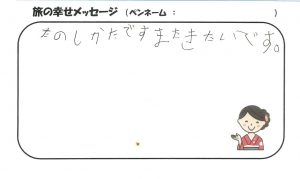 旅の幸せメッセージ (ペンネーム： )
たのしかたですまたきたいです。